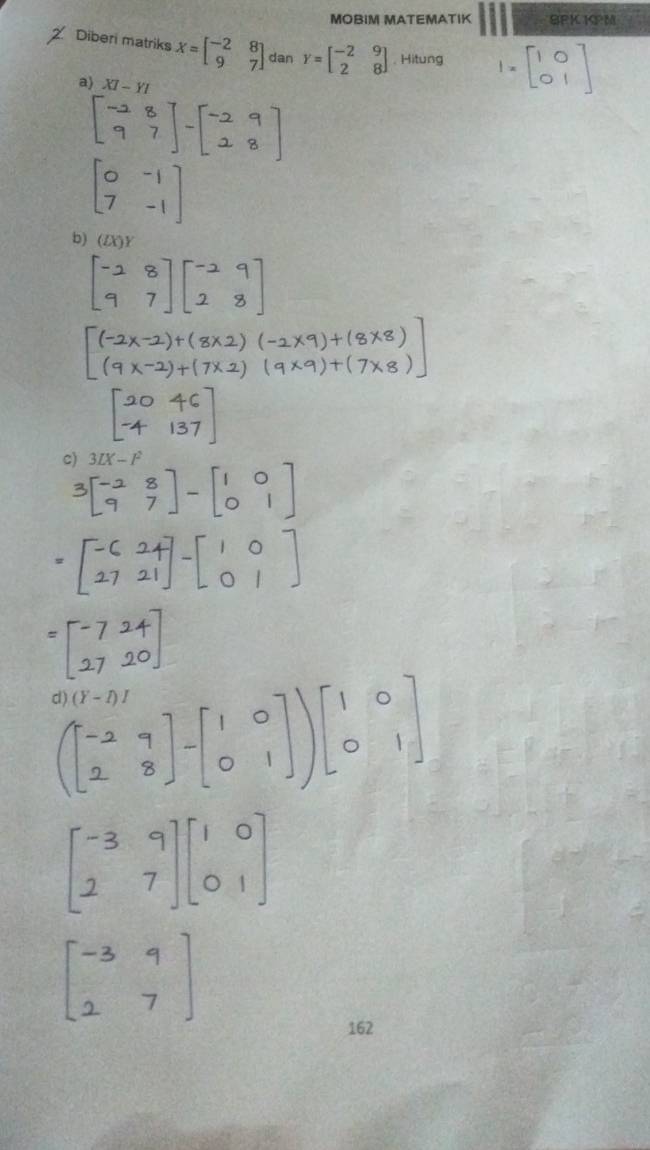 MOBIM MATEMATIK BPK KPM
2. Diberi matriks X = [-2 8; 9 7] dan Y = [-2 9; 2 8]. Hitung I = [1 0; 0 1]
a) XI – YI
[-2 8; 9 7] - [-2 9; 2 8]
[0 -1; 7 -1]
b) (IX)Y
[-2 8; 9 7] [-2 9; 2 8]
[(-2×-2)+(8×2) (-2×9)+(8×8)
(9×-2)+(7×2) (9×9)+(7×8)]
[20 46; -4 137]
c) 3IX – I²
3[-2 8; 9 7] - [1 0; 0 1]
= [-6 24; 27 21] - [1 0; 0 1]
= [-7 24; 27 20]
d) (Y – I) I
([-2 9; 2 8] - [1 0; 0 1]) [1 0; 0 1]
[-3 9; 2 7] [1 0; 0 1]
[-3 9; 2 7]
162